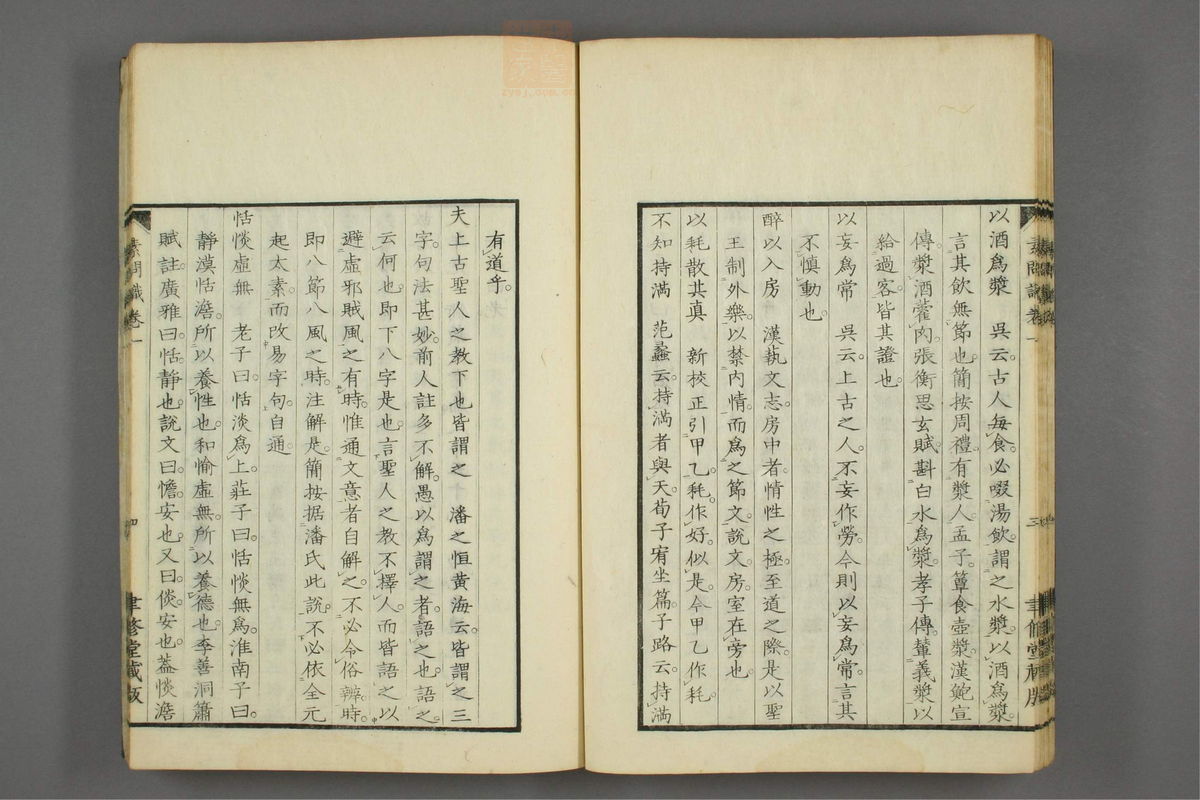 以酒爲漿　吳云。古人每食。必啜湯飲。謂之水漿。以酒爲漿。
言其飲無節也。簡按周禮。有漿人。孟子。簞食壺漿。漢鮑宣
傳。漿酒藿肉。張衡思玄賦。斟白水爲漿。孝子傳。輦義漿以
給過客。皆其證也。
以妄爲常　吳云。上古之人。不妄作勞。今則以妄爲常。言其
不慎動也。
醉以入房　漢執文志。房中者。情性之極。至道之際。是以聖
王制外樂。以禁內情。而爲之節文。說文。房。室在旁也。
以耗散其真　新校正引甲乙。耗。作好。似是。今甲乙作耗
不知持滿　范蠡云。持滿者與天。荀子宥坐篇。子路云。持滿
有道乎。
夫上古聖人之教下也皆謂之　潘之恒黃海云。皆謂之三
字。句法甚妙。前人註多不解。愚以爲謂之者。語之也。語之
云何也。即下八字是也。言聖人之教不擇人。而皆語之以
避虛邪賊風。之有時。惟通文意者自解之。不必令俗辨。時。
即八節八風之時。注解是。簡按据潘氏此說。不必依全元
起太素而改易字句。自通。
恬惔虛無　老子曰。恬淡爲上。莊子曰。恬惔無爲。淮南子曰。
靜漠恬澹。所以養性也。和愉虛無。所以養德也。李善洞簫
賦註。廣雅曰。恬。靜也。說文曰。憺。安也。又曰。倓。安也。葢惔澹
素問識卷一
四
聿修堂藏板